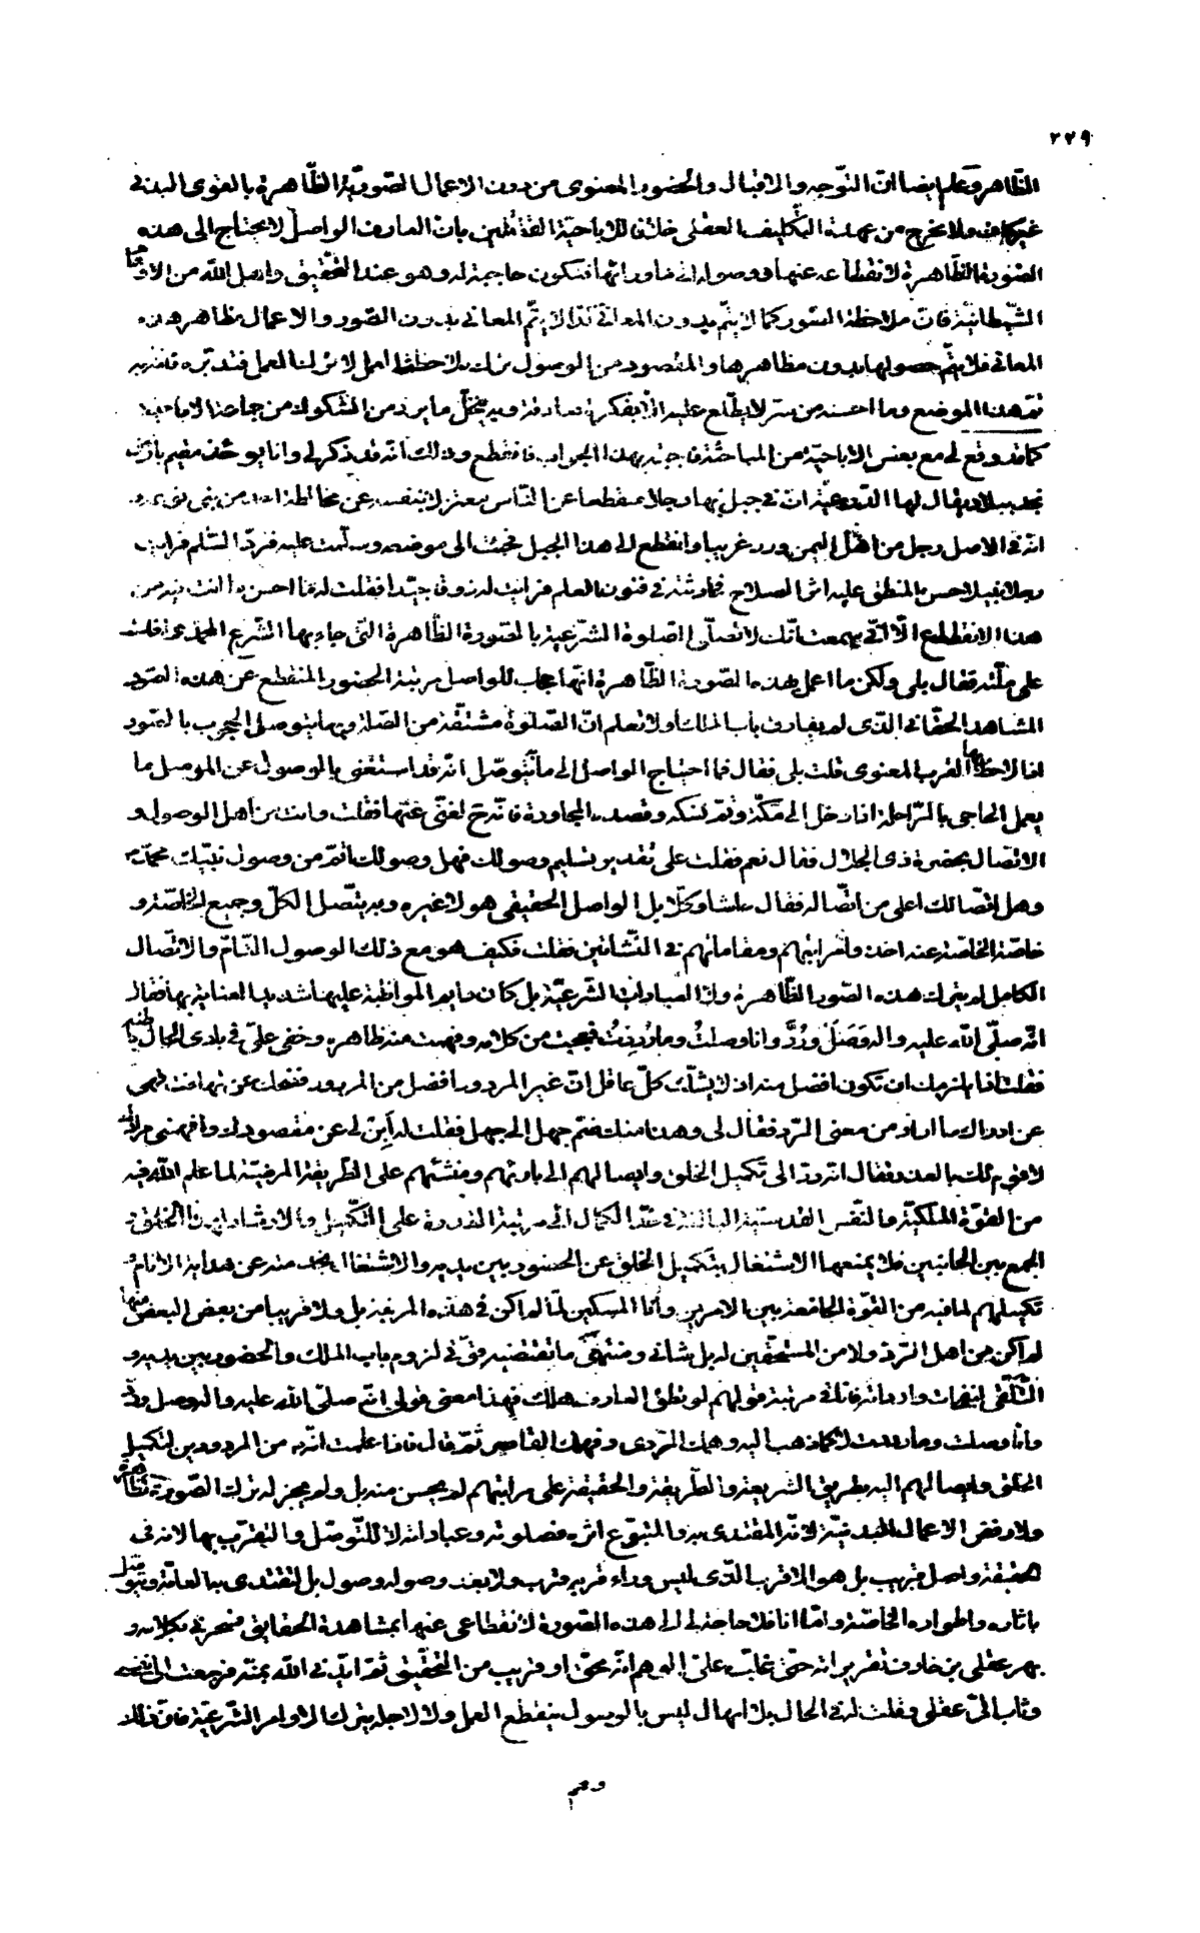 ٢٢٩
الظاهر وعلم ايضا انّ التوّجه والاقبال والحضور المعنوى من دون الاعمال الصّوريّة الظّاهرة بالقوى البدنى
غير كاف ولا مخرج من عهدة التكليف العقلى خلافا للاباحيّة القائلين بان العارف الواصل لا يحتاج الى هذه
الصّورة الظّاهرة لانقطاعه عنها ووصوله الى ماورائها فتكون حاجبة له وهو عند التحقيق واهل الله من
الشيطانيّة فان ملاحظة الصّور كما لا يتمّ بدون المعانى كذا لا يتمّ المعانى بدون الصّور والاعمال مظاهر هذه
المعانى فلا يتمّ حصولها بدون مظاهرها والمقصود من الوصول ترك ملاحظة العمل لا ترك العمل فتدبّره
هذا الموضع وما احسنه من سرّ لا يطّلع عليه وبه ينحلّ ما يرد من الشكوك من جماعة الاباحيّة
كما قد وقع لى مع بعض الاباحيّة من المباحثة فاجبته بهذا الجواب فانقطع وذلك انّه قد ذكر لى وانا يومئذ مقيم بارض
نجد ببلاد يقال لها الدرعيّة ان فى جبل بها رجلا منقطعا عن النّاس معتزلا بنفسه عن مخالطة
انّه فى الاصل رجل من اهل اليمن ورد غريبا وانقطع الى هذا الجبل فجئت الى موضعه وسلّمت عليه فردّ السّلم فرايت
رجلا نبيلا حسن المنطق عليه اثر الصلاح فحادثته فى فنون العلم فرايت له ذوقا جيّدا فقلت له ما احسن ما انت فيه من
هذا الانقطاع الّا انّى سمعت انّك لا تصلّى الصلوة الشّرعيّة بالصّورة الظّاهرة التى جاء بها الشرع المحمّدى
على ملّته فقال بلى ولكن ما اعمل بهذه الصّورة الظّاهرة انّها حجاب للواصل مرتبة الحضور المنقطع عن هذه الصّور
المشاهد الحقّانى الذّى لم يفارق باب الملك اولا تعلم انّ الصّلوة مشتقّة من الصّلة وبها يتوصل المحجوب بالصّور
القرب المعنوى قلت بلى فقال فما احتياج الواصل الى ما به يتوصّل انّه قد استغنى بالوصول عن الموصل ما
يعمل الحاجى بالرّاحلة اذا دخل الى مكّة وتم نسكه وقصد المجاورة غنى عنها فقلت وانت من اهل الوصول و
الاتصال بحضرة ذى الجلال فقال نعم فقلت على تقدير تسليم وصولك فهل وصولك اتمّ من وصول نبيّك محمّد
وهل اتّصالك اعلى من اتصاله فقال حاشا وكلّا بل الواصل الحقيقى هو لا غيره وبه يتّصل الكلّ وجميع الخاصّة و
خاصّة الخاصّة عنه اخذوا مراتبهم ومقاماتهم فى النّشاتين فقلت فكيف هو مع ذلك الوصول التّامّ والاتّصال
الكامل لم يترك هذه الصّور الظّاهرة ولا العبادات الشّرعيّة بل كان دايم المواظبة عليها شديد العناية بها فقال
انّه صلّى الله عليه واله وصَلَ ورُدَّ وانا وصلتُ وما رُدِدْتُ فعجبت من كلامه وفهمت منه ظاهره وخفى علىّ فى بادى الحال باطنه
فقلت اذا يلزمك ان تكون افضل منه اذ لا يشكّ كلّ عاقل انّ غير المردود افضل من المردود فضحك عن تهافت فهمى
عن ادراك ما اراد من معنى الردّ فقال لى وهذا منك ضمّ جهل الى جهل فقلت له ابن لى عن مقصودك وافهمنى مرادك
لاقوم لك بالعذر فقال انّه ردّ الى تكميل الخلق وايصالهم الى باريهم ومنشئهم على الطّريقة المرضيّة لما علم الله فيه
من القوّة الملكيّة والنّفس القدسيّة البالغة فى حدّ الكمال الى مرتبة القدرة على التّكميل والارشاد
الجمع بين الجانبين فلا يمنعها الاشتغال بتكميل الخلق عن الحضور بين يديه ولا الاشتغال عن هداية الانام و
تكميلهم لما فيه من القوّة الجامعة بين الامرين وأنا المسكين لمّا لم اكن فى هذه المرتبة بل ولا قريبا من بعض البعض منها
لم اكن من اهل الردّ ولا من المستحقّين له بل شانى ومنتهى ما تقتضيه قوّتى لزوم باب الملك والحضور بين يديه و
التلّقى لنفحات وارداته فانّى فى مرتبة قولهم لو نطق العارف هلك فهذا معنى قولى انّه صلّى الله عليه واله وصل وردّ
وأنا وصلت وما رددت لا كما ذهب اليه وهمك الردى وفهمك القاصر ثمّ قال فاذا علمت انّه من المردودين لتكميل
الخلق وايصالهم اليه بطريق الشريعة والطّريقة والحقيقة على مراتبهم لم يحسن منه بل ولم يجز له ترك الصّورة الظّاهرة
ولا رفض الاعمال البدنيّة لانّه المقتدى به والمتبوع اثره فصلوته وعباداته لا للتّوصّل والتقرّب بها لانه فى
الحقيقة واصل قريب بل هو الاقرب الذّى ليس وراء قربه قرب ولا بعد وصوله وصول بل لتقتدى به العامّة
باثاره واطواره الخاصّة وامّا انا فلا حاجة لى الى هذه الصّورة لانقطاعى عنها بمشاهدة الحقايق فسحرنى بكلامه و
بهر عقلى بزخارف تقريره حتّى غلب علىّ الوهم انّه محقّ او قريب من التحقيق ثمّ ايّدنى الله بمنّه فرجعت الى نفسى
وثاب الىّ عقلى وقلت له فى الحال بلا امهال ليس بالوصول ينقطع العمل ولا لاجله يترك الاوامر الشّرعيّة